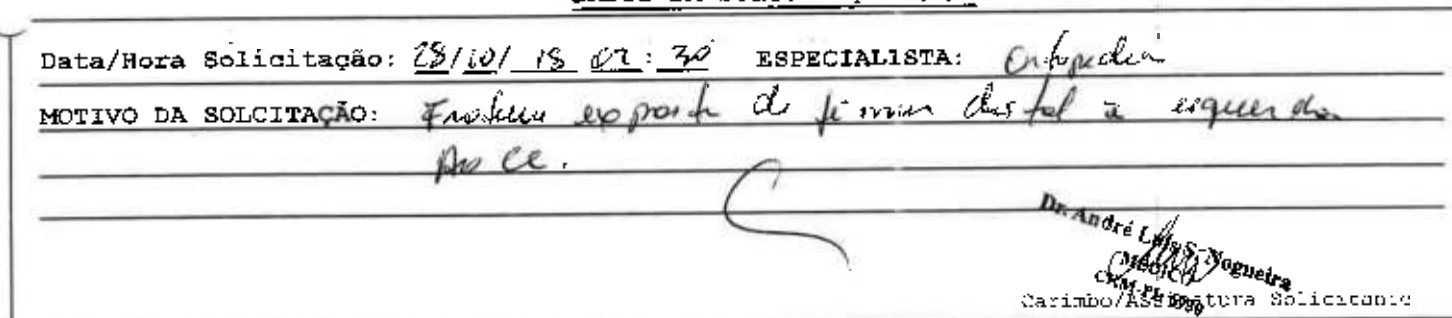 Data/Hora Solicitação: 28/10/18 02:30 ESPECIALISTA: Ortopedia
MOTIVO DA SOLCITAÇÃO: Fratura exposta de fêmur distal à esquerda
Ao CC.
Dr. André Luis S. Nogueira
MÉDICO
Carimbo/Assinatura Solicitante